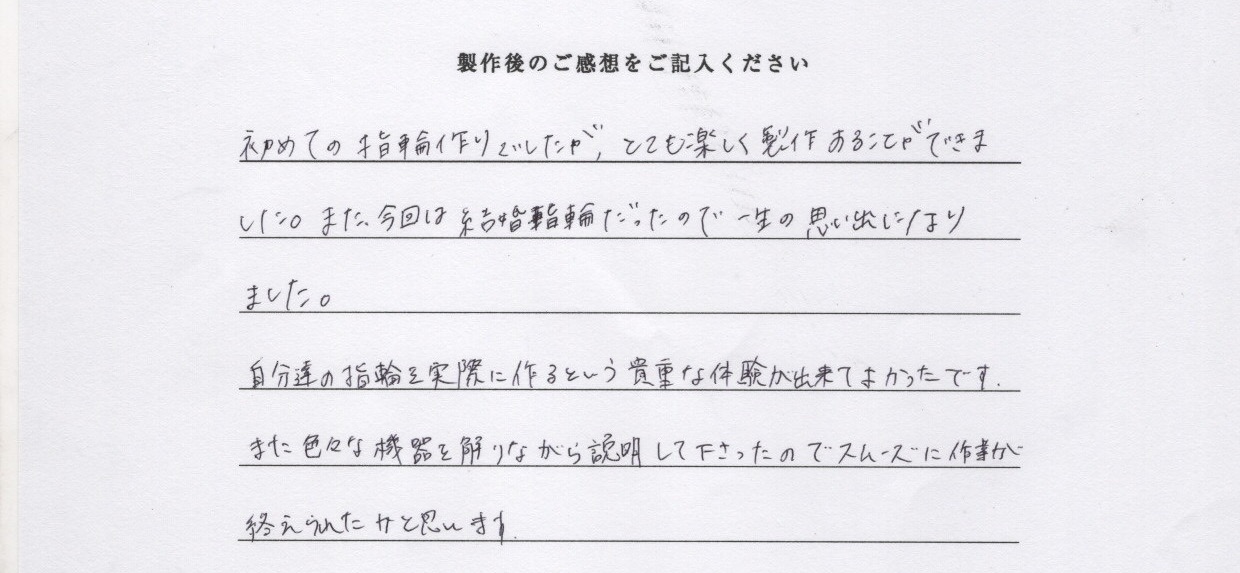 製作後のご感想をご記入ください
初めての指輪作りでしたが、とても楽しく製作あることができま
した。また、今回は結婚指輪だったので一生の思い出になり
ました。
自分達の指輪を実際に作るという貴重な体験が出来てよかったです.
また色々な機器を解りながら説明して下さったのでスムーズに作業が
終えられたかと思います.